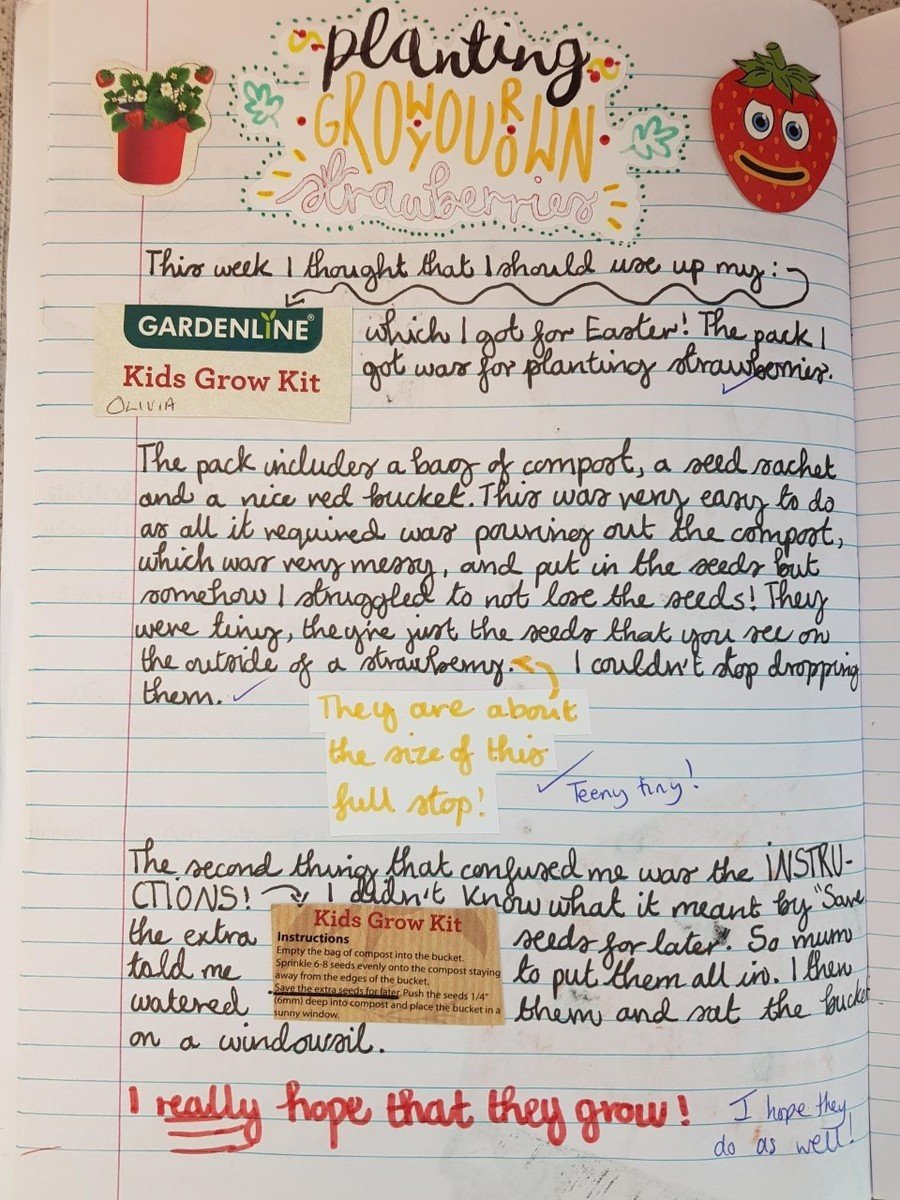 planting
GROW YOUR OWN
strawberries
This week I thought that I should use up my:
GARDENLINE®
Kids Grow Kit
OLIVIA
which I got for Easter! The pack I
got was for planting strawberries.
The pack includes a bag of compost, a seed sachet
and a nice red bucket. This was very easy to do
as all it required was pouring out the compost,
which was very messy, and put in the seeds but
somehow I struggled to not lose the seeds! They
were tiny, they're just the seeds that you see on
the outside of a strawberry. I couldn't stop dropping
them.
They are about
the size of this
full stop!
Teeny tiny!
The second thing that confused me was the INSTRU-
CTIONS! I didn't know what it meant by "Save
the extra seeds for later". So mum
told me to put them all in. I then
watered them and sat the bucket
on a windowsil.
Kids Grow Kit
Instructions
Empty the bag of compost into the bucket.
Sprinkle 6-8 seeds evenly onto the compost staying
away from the edges of the bucket.
Save the extra seeds for later. Push the seeds 1/4"
(6mm) deep into compost and place the bucket in a
sunny window.
I really hope that they grow!
I hope they
do as well!